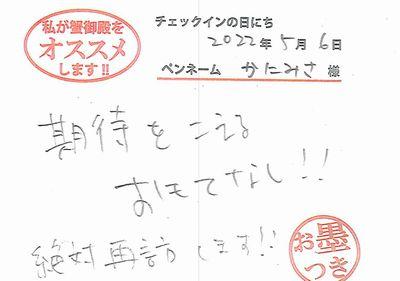 私が蟹御殿を
オススメ
します!!
チェックインの日にち
2022年5月6日
ペンネーム かにみさ 様
期待をこえる
おもてなし!!
絶対再訪します!!
お墨
つき